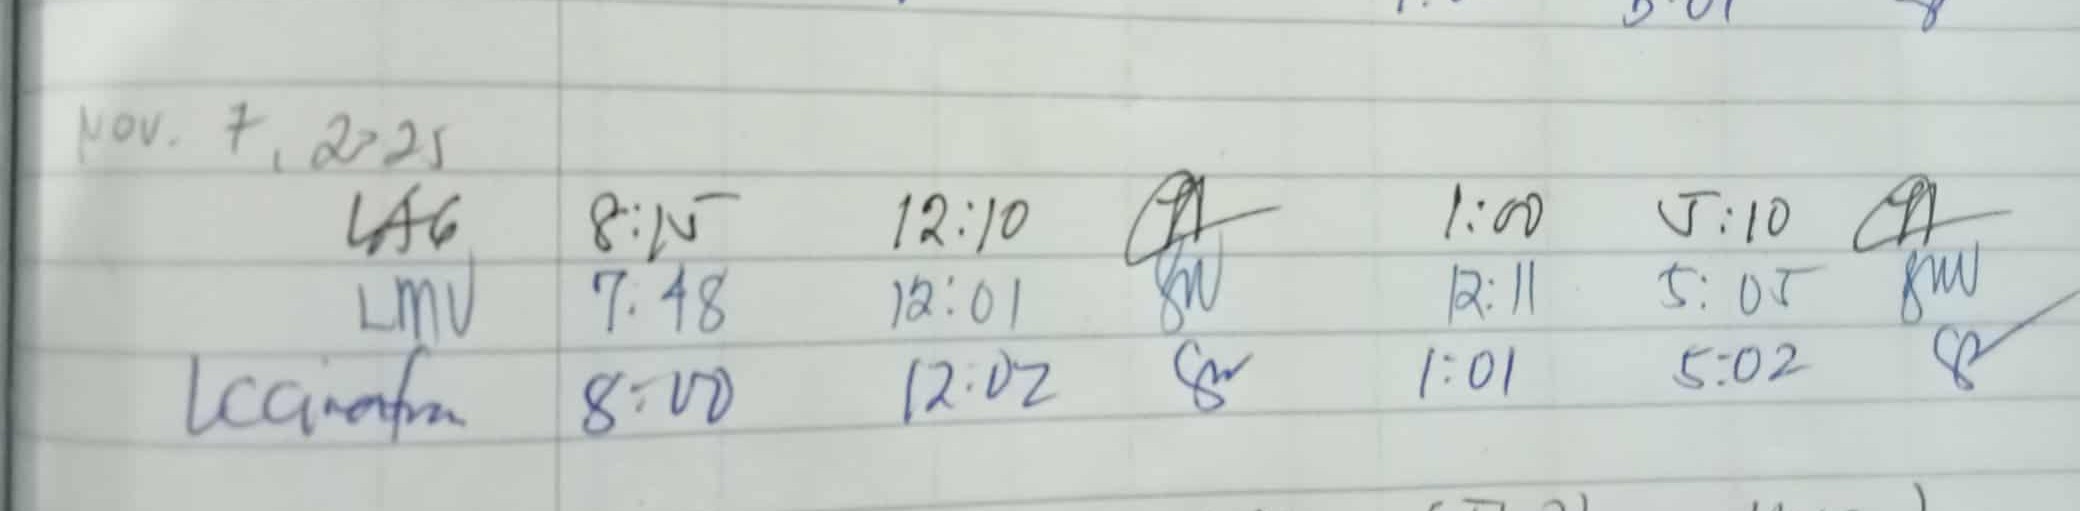 Nov. 7, 2025
LAG 8:15 12:10 1:00 5:10
LMV 7:48 12:01 12:11 5:05
8:00 12:02 1:01 5:02